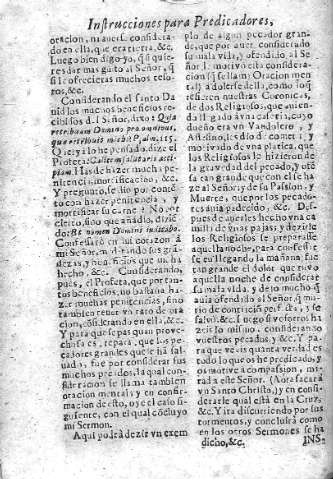 Instrucciones para Predicadores,
oracion, ni auerse considerado
en ella, que era tierra, &c.
Luego bien digo yo, que quieres
dar mas gusto al Señor, que
si le ofrecieras muchos tesoros,
&c.
Considerando el santo Dauid
los muchos beneficios recibidos
del Señor, dixo: Quid
retribuam Domino pro omnibus,
quæ retribuit mihi? Psalm. 115.
Que? ya lo he pensado, dize el
Profeta: Calicem salutaris accipiam.
Has de hazer mucha penitencia,
mortificacion, &c.
Y pregunto, se dio por contento
con hazer penitencia, y
mortificar su carne? No, vclerito,
sino que añadio, diziendo:
Et nomen Domini inuocabo.
Confessarè en mi coraçon à
mi Señor, meditando sus grandezas,
y beneficios que me ha
hecho, &c. Considerando,
pues, el Profeta, que por tantos
beneficios, no bastaua hazer
muchas penitencias, sino
tambien tener vn rato de oracion,
considerando en ella, &c.
Y para que sepas quan prouechosa
es, repara, que los pecadores
grandes que se han salvado,
fue por considerar sus
muchos pecados, la qual consideracion
se llama tambien
oracion mental; y en confirmacion
de esto, oye el caso siguiente,
con el qual concluyo
mi Sermon.
Aqui podrà dezir vn exemplo
de algun pecador grande,
que por auer considerado
su mala vida, y ofendido al Señor
le motivò esta consideracion
(que llaman Oracion mental)
à dolerse della, como
refieren nuestras Coronicas,
de dos Religiosos, que auiendo
llegado à vna casería, cuyo
dueño era vn Vandolero, y
Assesino, les dio de comer; y
motivado de vna platica, que
los Religiosos le hizieron de
la gravedad del pecado, y ofensa
tan grande que con èl se haze
al Señor; y de su Passion, y
Muerte, que por los pecadores
auia padecido, &c. Despues
de auerles hecho vna camilla
de vnas pajas, y dezirle
los Religiosos se preparasse
aquella noche, para confessarse
en llegando la mañana, fue
tan grande el dolor que tuvo
aquella noche de considerar
su mala vida, y de lo mucho que
auia ofendido al Señor, que murio
de contricion perfecta, y se
salvò, &c. Luego si vosotros hazeis
lo mismo, considerando
vuestros pecados, y &c. Y para
que veais quanta verdad es
todo lo que os he predicado, y
os motive à compassion, mirad
à este Señor. (Aora sacarà
vn Santo Christo,) y en considerarle
qual està en la Cruz,
&c. Y irà discurriendo por sus
tormentos, y concluirà como
en los otros Sermones se ha
dicho, &c.
INS-